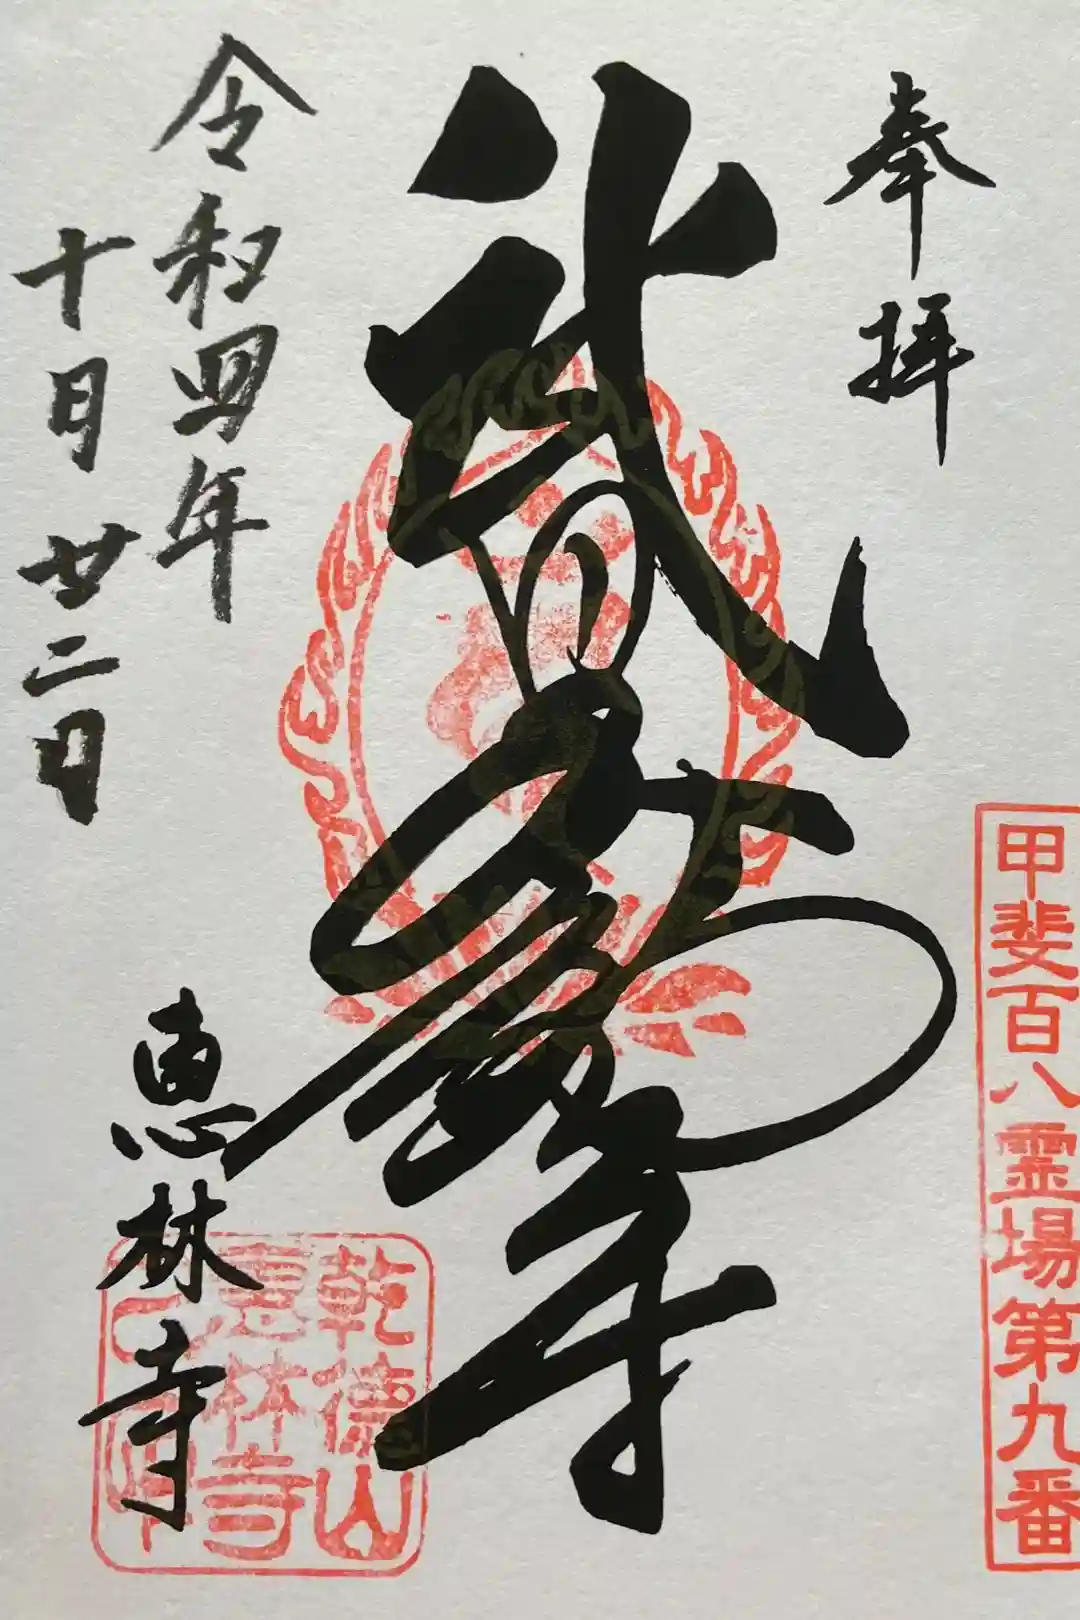 奉拝
甲斐百八霊場第九番
武田不動尊
令和四年
十月廿二日
恵林寺
乾徳山
恵林寺
之印